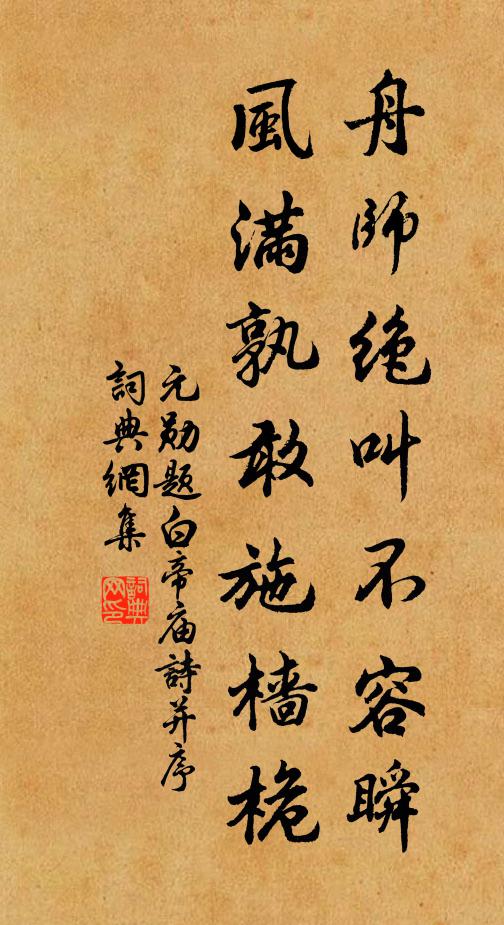 舟師絶叫不容瞬
風滿孰敢施檣桅
元勛題白帝庙詩并序
詞典網集
詞典网印